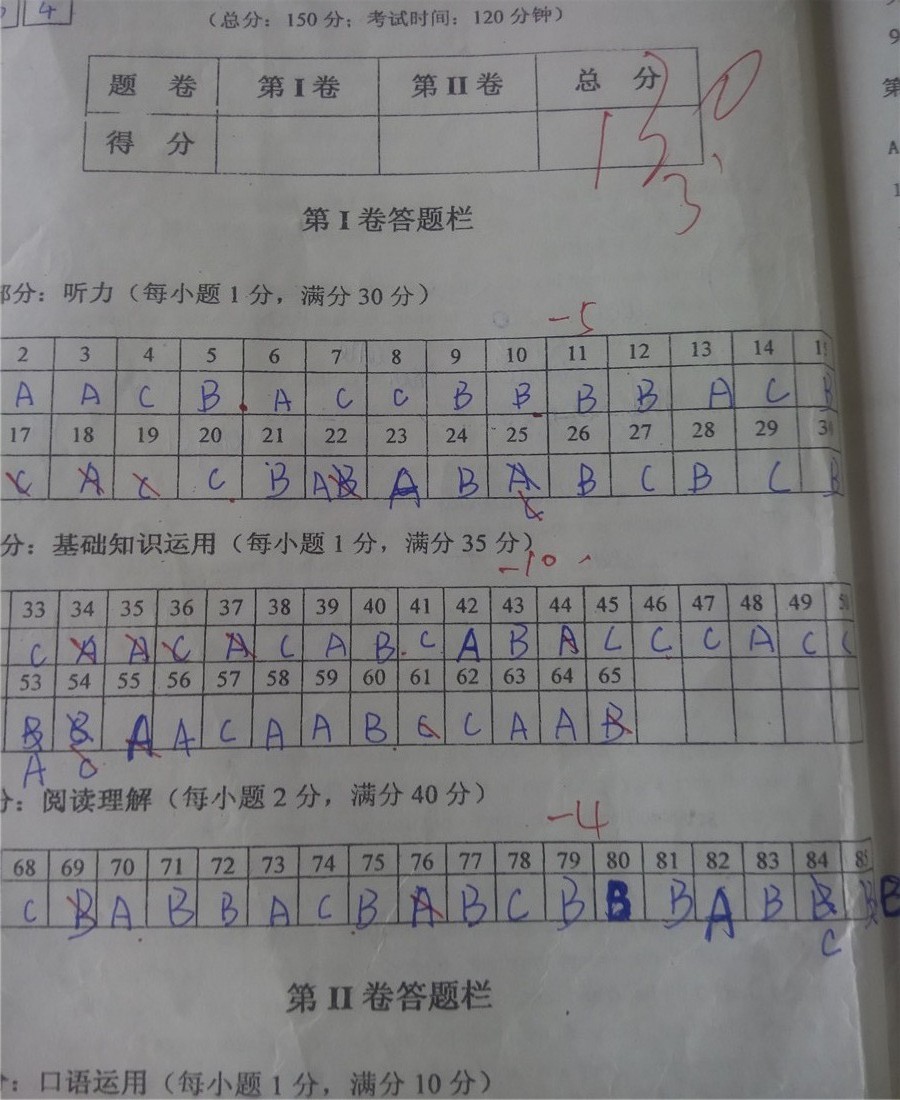 4
（总分：150分；考试时间：120分钟）
题 卷 第I卷 第II卷 总 分
得 分
130
3
第I卷答题栏
部分：听力（每小题1分，满分30分）
-5
2 3 4 5 6 7 8 9 10 11 12 13 14
A A C B A C C B B B B A C B
17 18 19 20 21 22 23 24 25 26 27 28 29 30
C A C C B AB A B A B C B C B
C
分：基础知识运用（每小题1分，满分35分）
-10
33 34 35 36 37 38 39 40 41 42 43 44 45 46 47 48 49 50
C A A C A C A B C A B A C C C A C C
53 54 55 56 57 58 59 60 61 62 63 64 65
B B A A C A A B C C A A B
A C
分：阅读理解（每小题2分，满分40分）
-4
68 69 70 71 72 73 74 75 76 77 78 79 80 81 82 83 84 85
C B A B B A C B A B C B B B A B B B B
C
第II卷答题栏
：口语运用（每小题1分，满分10分）